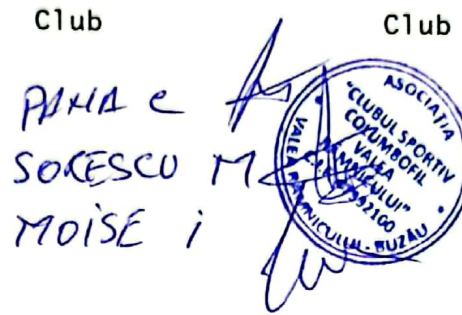 Club Club
PANA C
SORESCU M
MOISE i
ASOCIAȚIA
"CLUBUL SPORTIV
COLUMBOFIL
VALEA
RÂMNICULUI"
VALEA RÂMNICULUI - BUZĂU